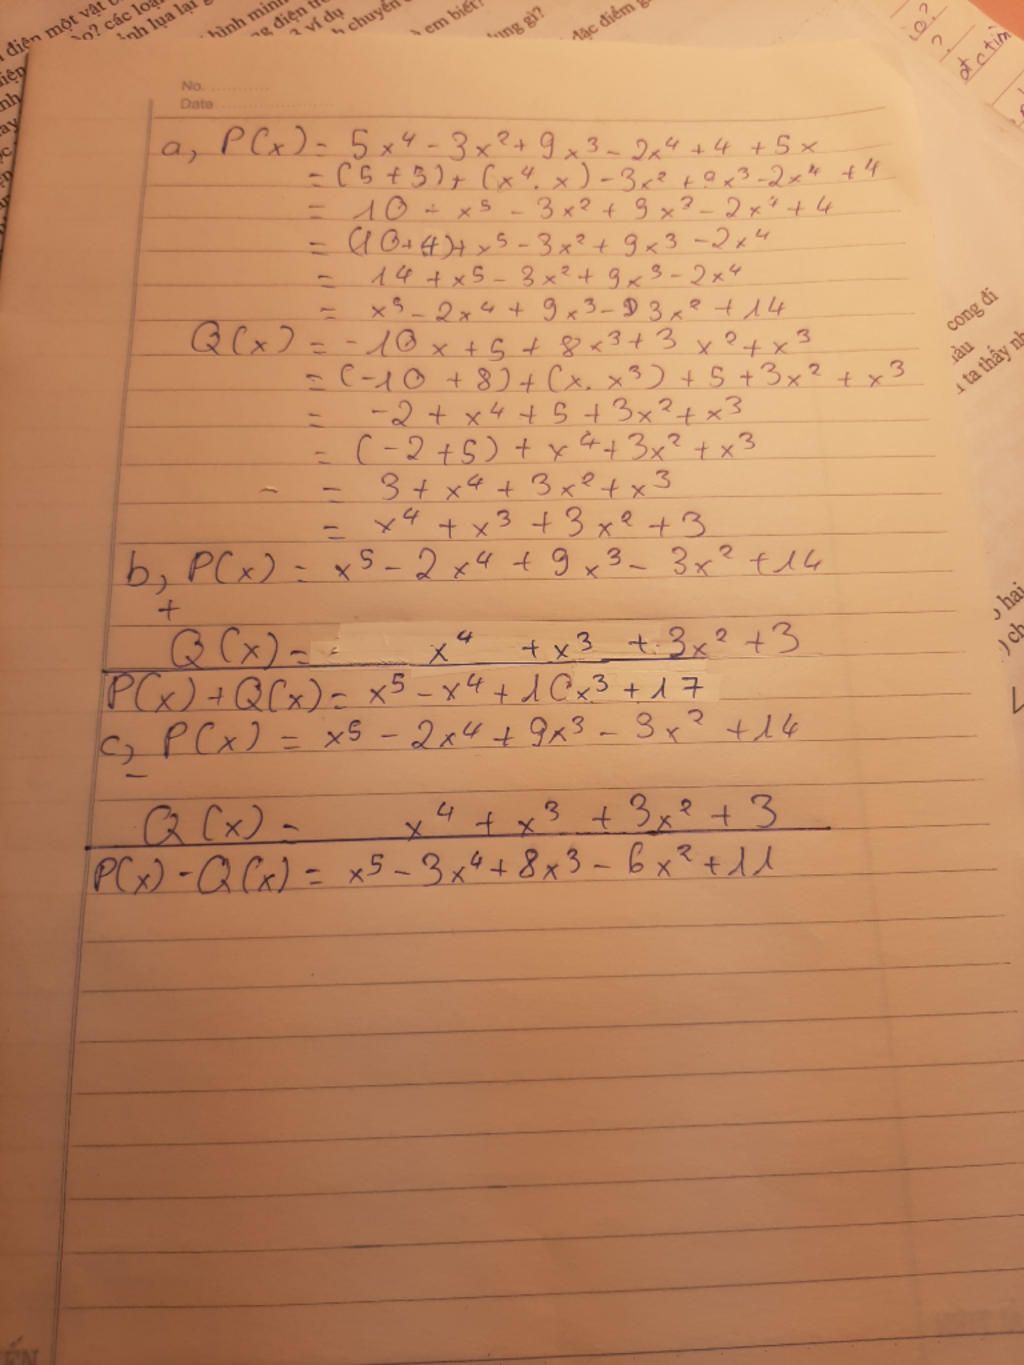 điện một vật b
ào? các loại
ình lụa lại g
hình minh
ng điện tr
ví dụ
h chuyển
em biết?
ụng gì?
đặc điểm g
cong đi
ầu
ta thấy nh
hai
ch
No. ..........
Date ....................
a, P(x) = 5x⁴ - 3x² + 9x³ - 2x⁴ + 4 + 5x
= (5 + 5) + (x⁴. x) - 3x² + 9x³ - 2x⁴ + 4
= 10 + x⁵ - 3x² + 9x³ - 2x⁴ + 4
= (10 + 4) + x⁵ - 3x² + 9x³ - 2x⁴
= 14 + x⁵ - 3x² + 9x³ - 2x⁴
= x⁵ - 2x⁴ + 9x³ - 3x² + 14
Q(x) = -10x + 5 + 8x³ + 3x² + x³
= (-10 + 8) + (x. x³) + 5 + 3x² + x³
= -2 + x⁴ + 5 + 3x² + x³
= (-2 + 5) + x⁴ + 3x² + x³
= 3 + x⁴ + 3x² + x³
= x⁴ + x³ + 3x² + 3
b, P(x) = x⁵ - 2x⁴ + 9x³ - 3x² + 14
+
Q(x) = x⁴ + x³ + 3x² + 3
P(x) + Q(x) = x⁵ - x⁴ + 10x³ + 17
c, P(x) = x⁵ - 2x⁴ + 9x³ - 3x² + 14
-
Q(x) = x⁴ + x³ + 3x² + 3
P(x) - Q(x) = x⁵ - 3x⁴ + 8x³ - 6x² + 11